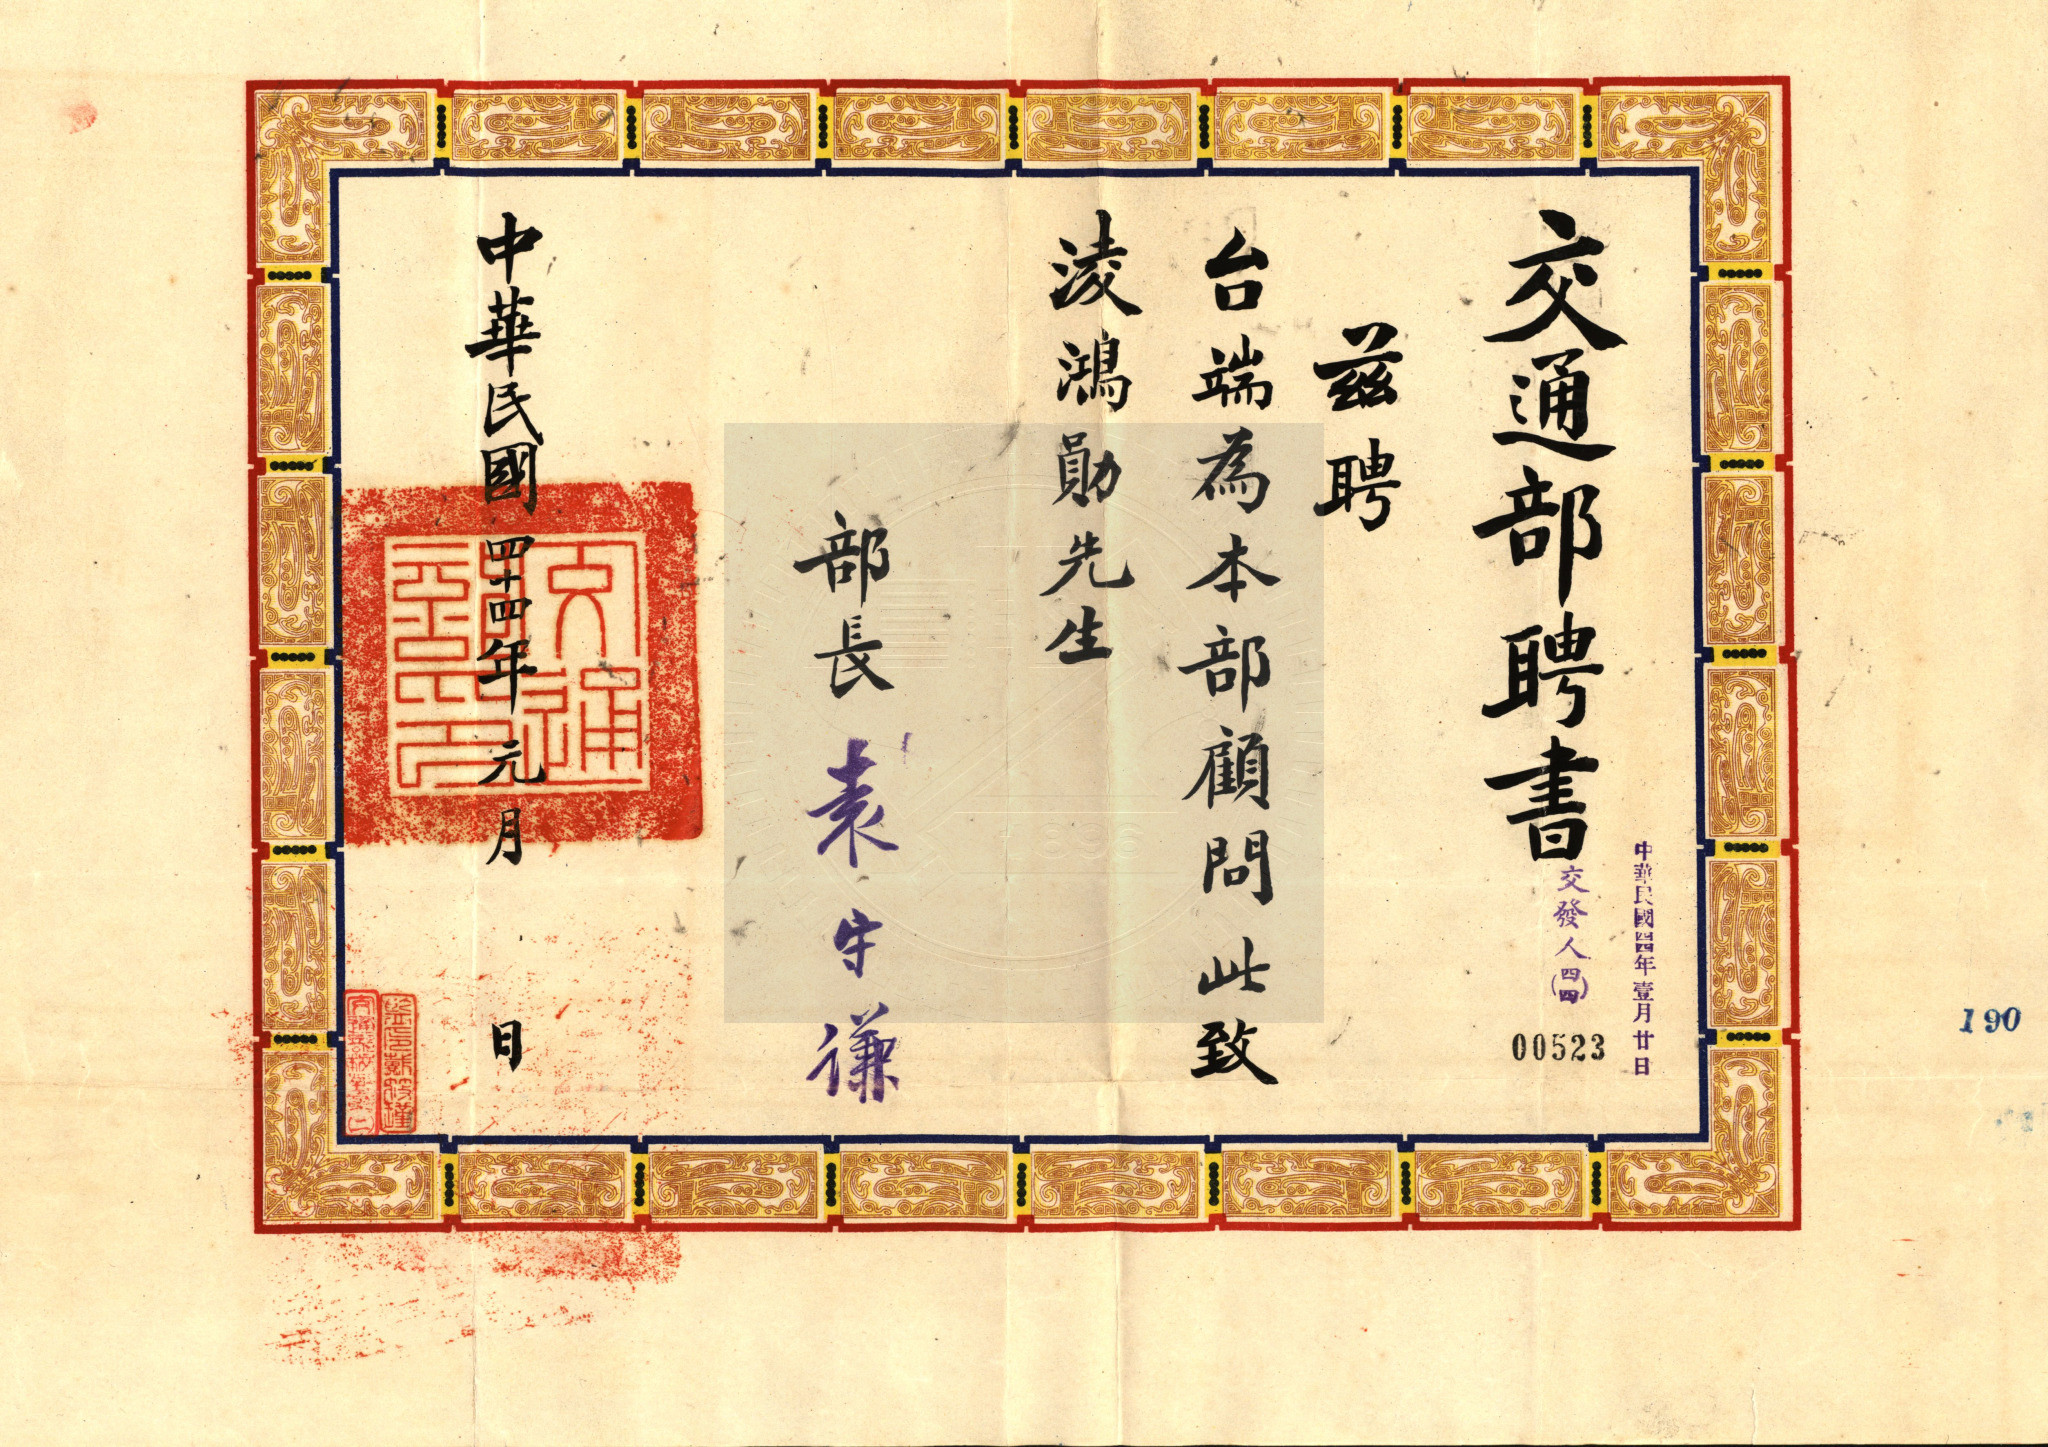 交通部聘書
中華民國四四年壹月廿日
交發人(四四)
00523
茲聘
台端為本部顧問此致
淩鴻勛先生
部長 袁守謙
中華民國四十四年元月 日
交通部印
190
1896